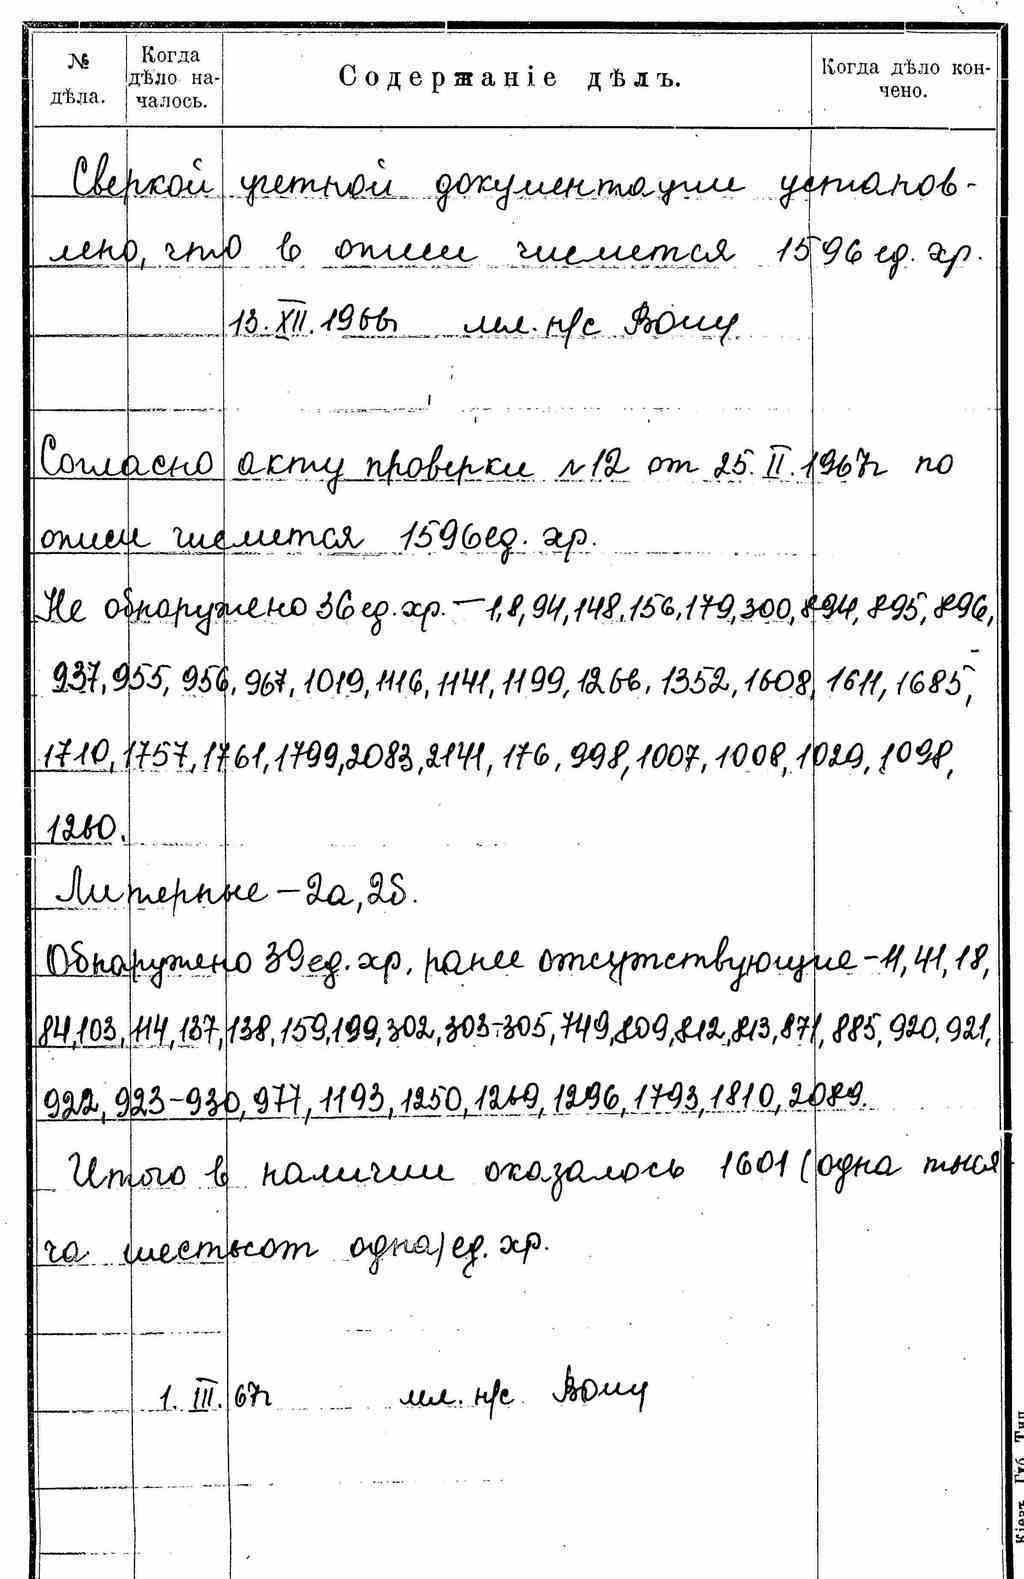 № дѣла.
Когда дѣло на-
чалось.
Содержаніе дѣлъ.
Когда дѣло кон-
чено.
Сверкой учетной документации установ-
лено, что в описи числится 1596 ед. хр.
13.XII.1966г мл. н/с
Согласно акту проверки №12 от 25.II.1967г по
описи числится 1596 ед. хр.
Не обнаружено 36 ед. хр. – 1,8,94,148,156,179,300,894,895,896,
937,955,956,967,1019,1116,1141,1199,1266,1352,1608,1611,1685,
1710,1757,1761,1799,2083,2141,176,998,1007,1008,1029,1098,
1260.
Литерные – 2а,2б.
Обнаружено 39 ед. хр. ранее отсутствующие – 11,41,18,
84,103,114,137,138,159,199,302,303-305,749,809,812,813,871,885,920,921,
922,923-930,977,1193,1250,1269,1296,1793,1810,2089.
Итого в наличии оказалось 1601 (одна тыся
ча шестьсот одна) ед. хр.
1.III.67г мл. н/с
Кіевъ Губ Тип